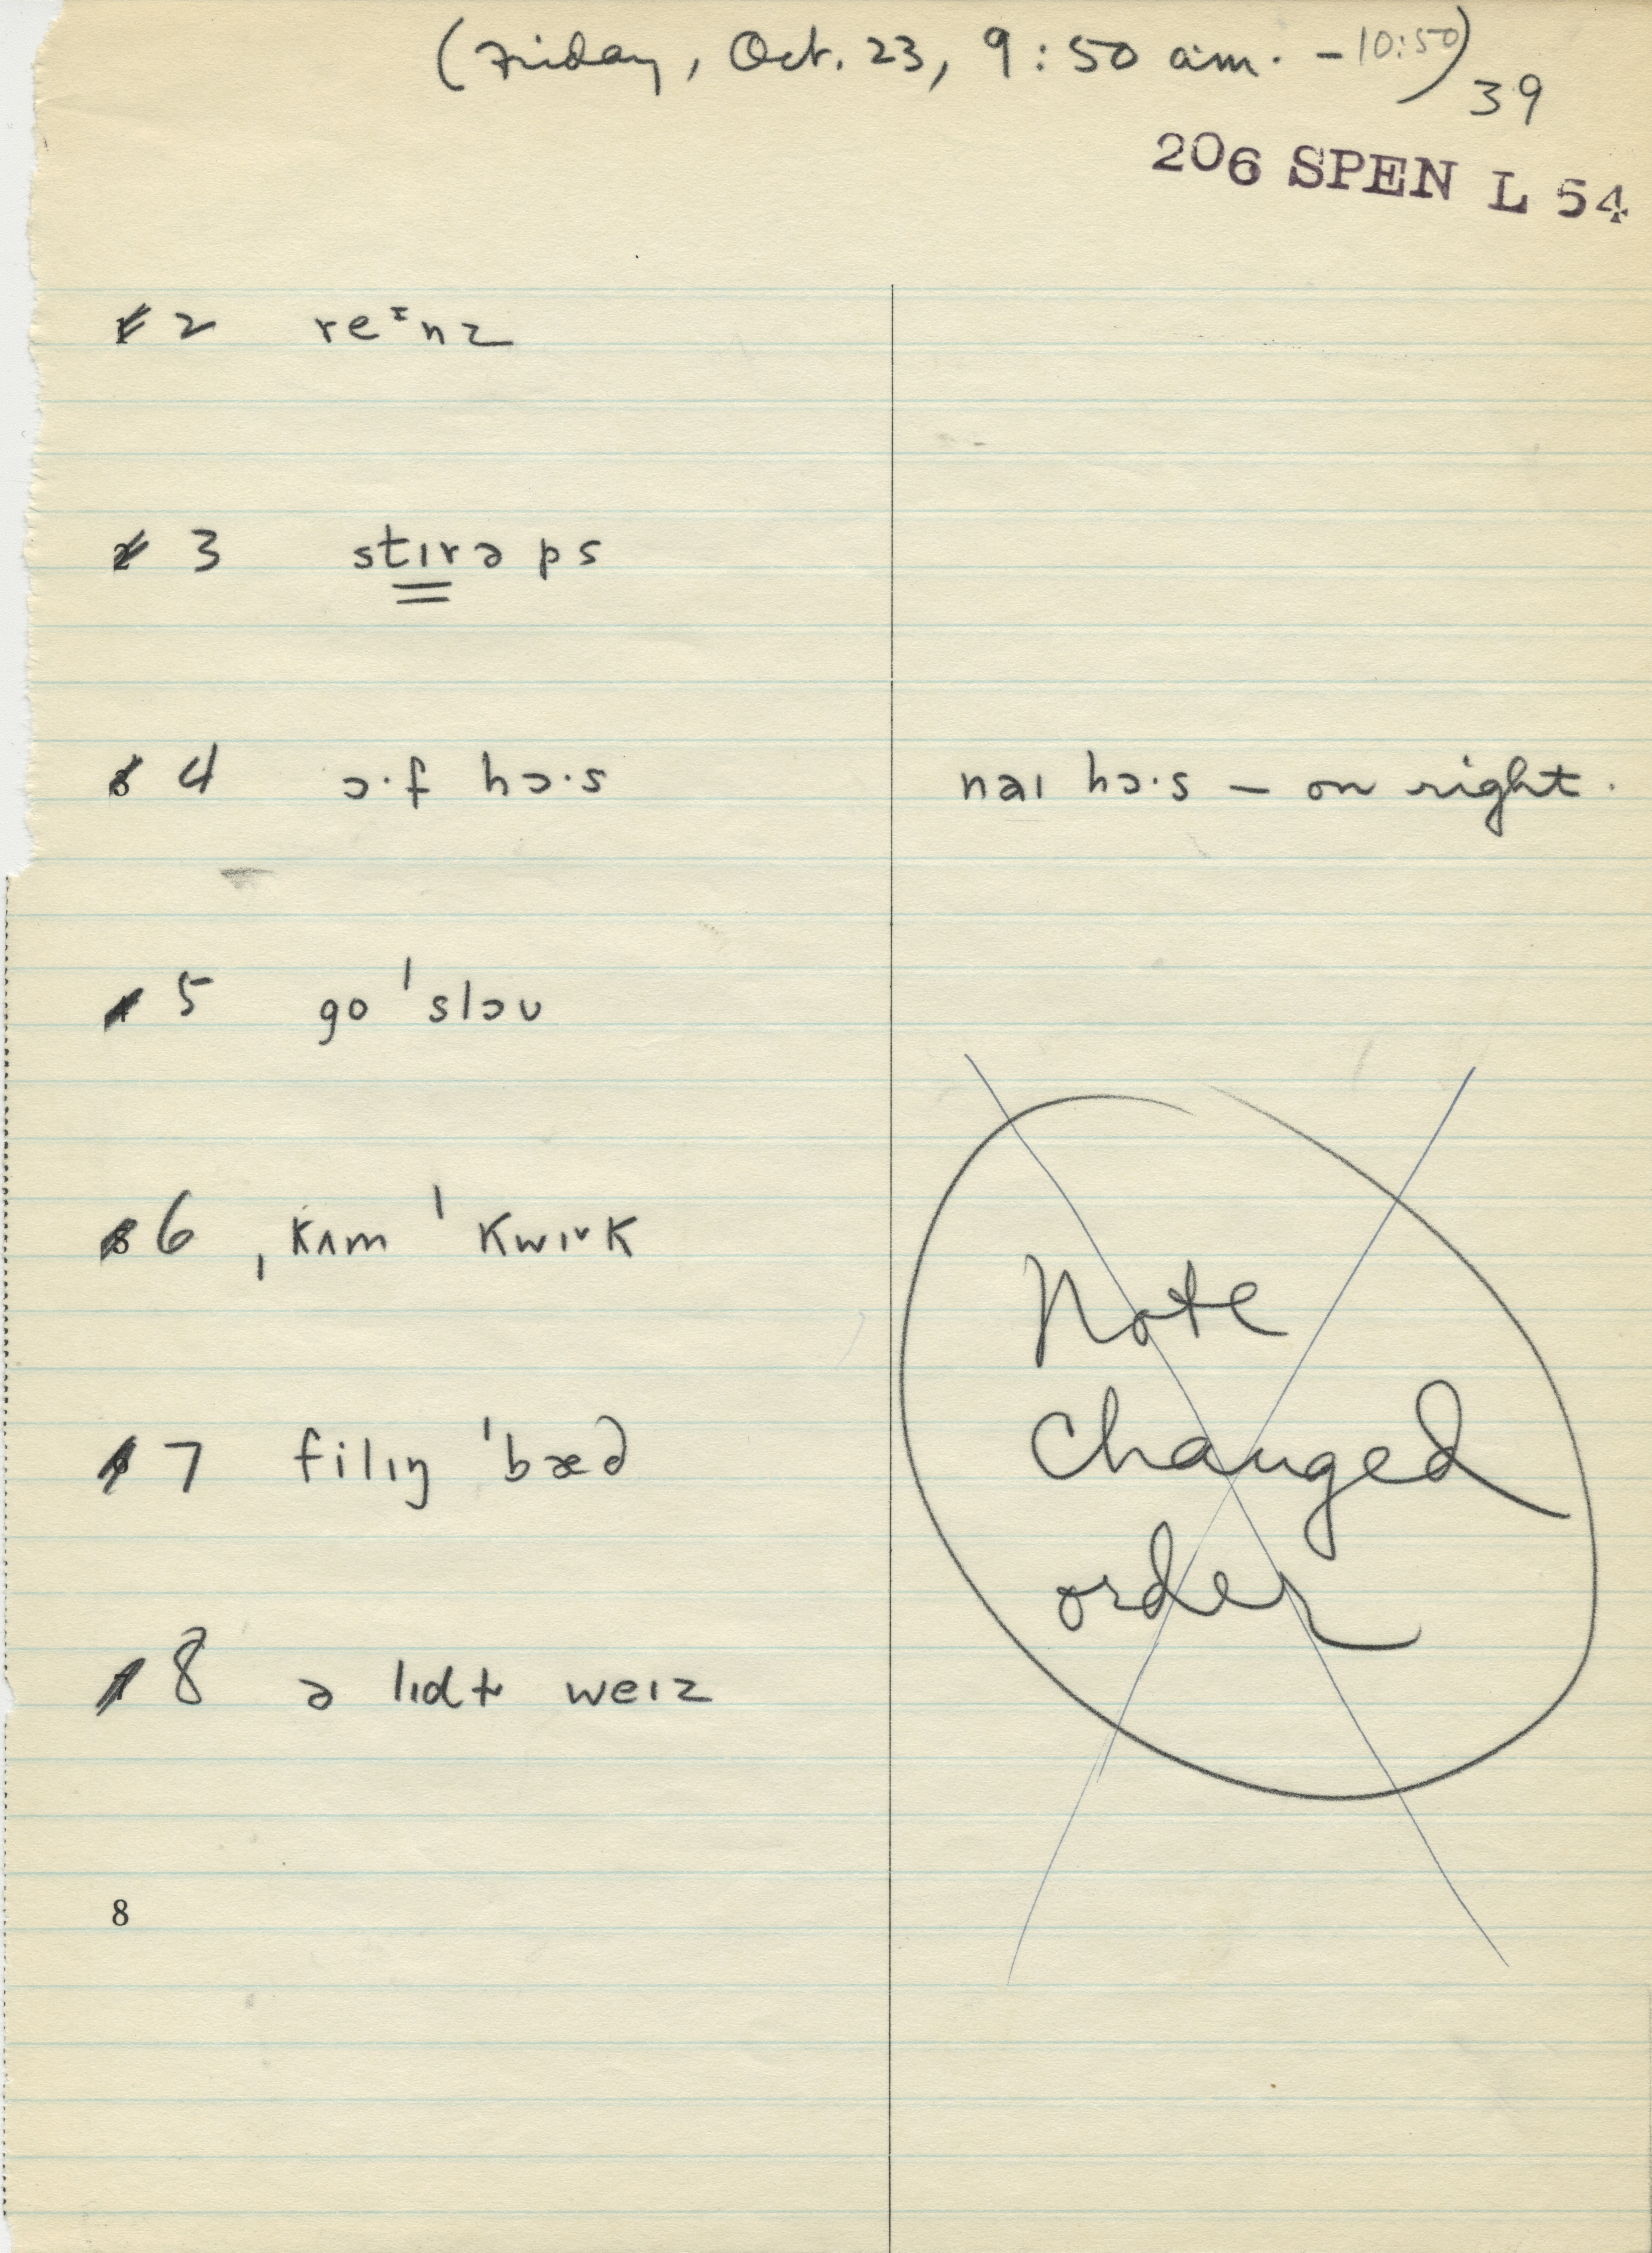 (Friday, Oct. 23, 9:50 am. - 10:50)
39
206 SPEN L 54
2 reᶦnz
3 stɪrəps
4 ɔ·f hɔ·s naɪ hɔ·s — on right.
5 go ˈslɔʊ
6 ˌkʌm ˈkwɪᵛk
7 filɪŋ ˈbæd
8 ə lɪdɫ weɪz
Note
changed
order
8